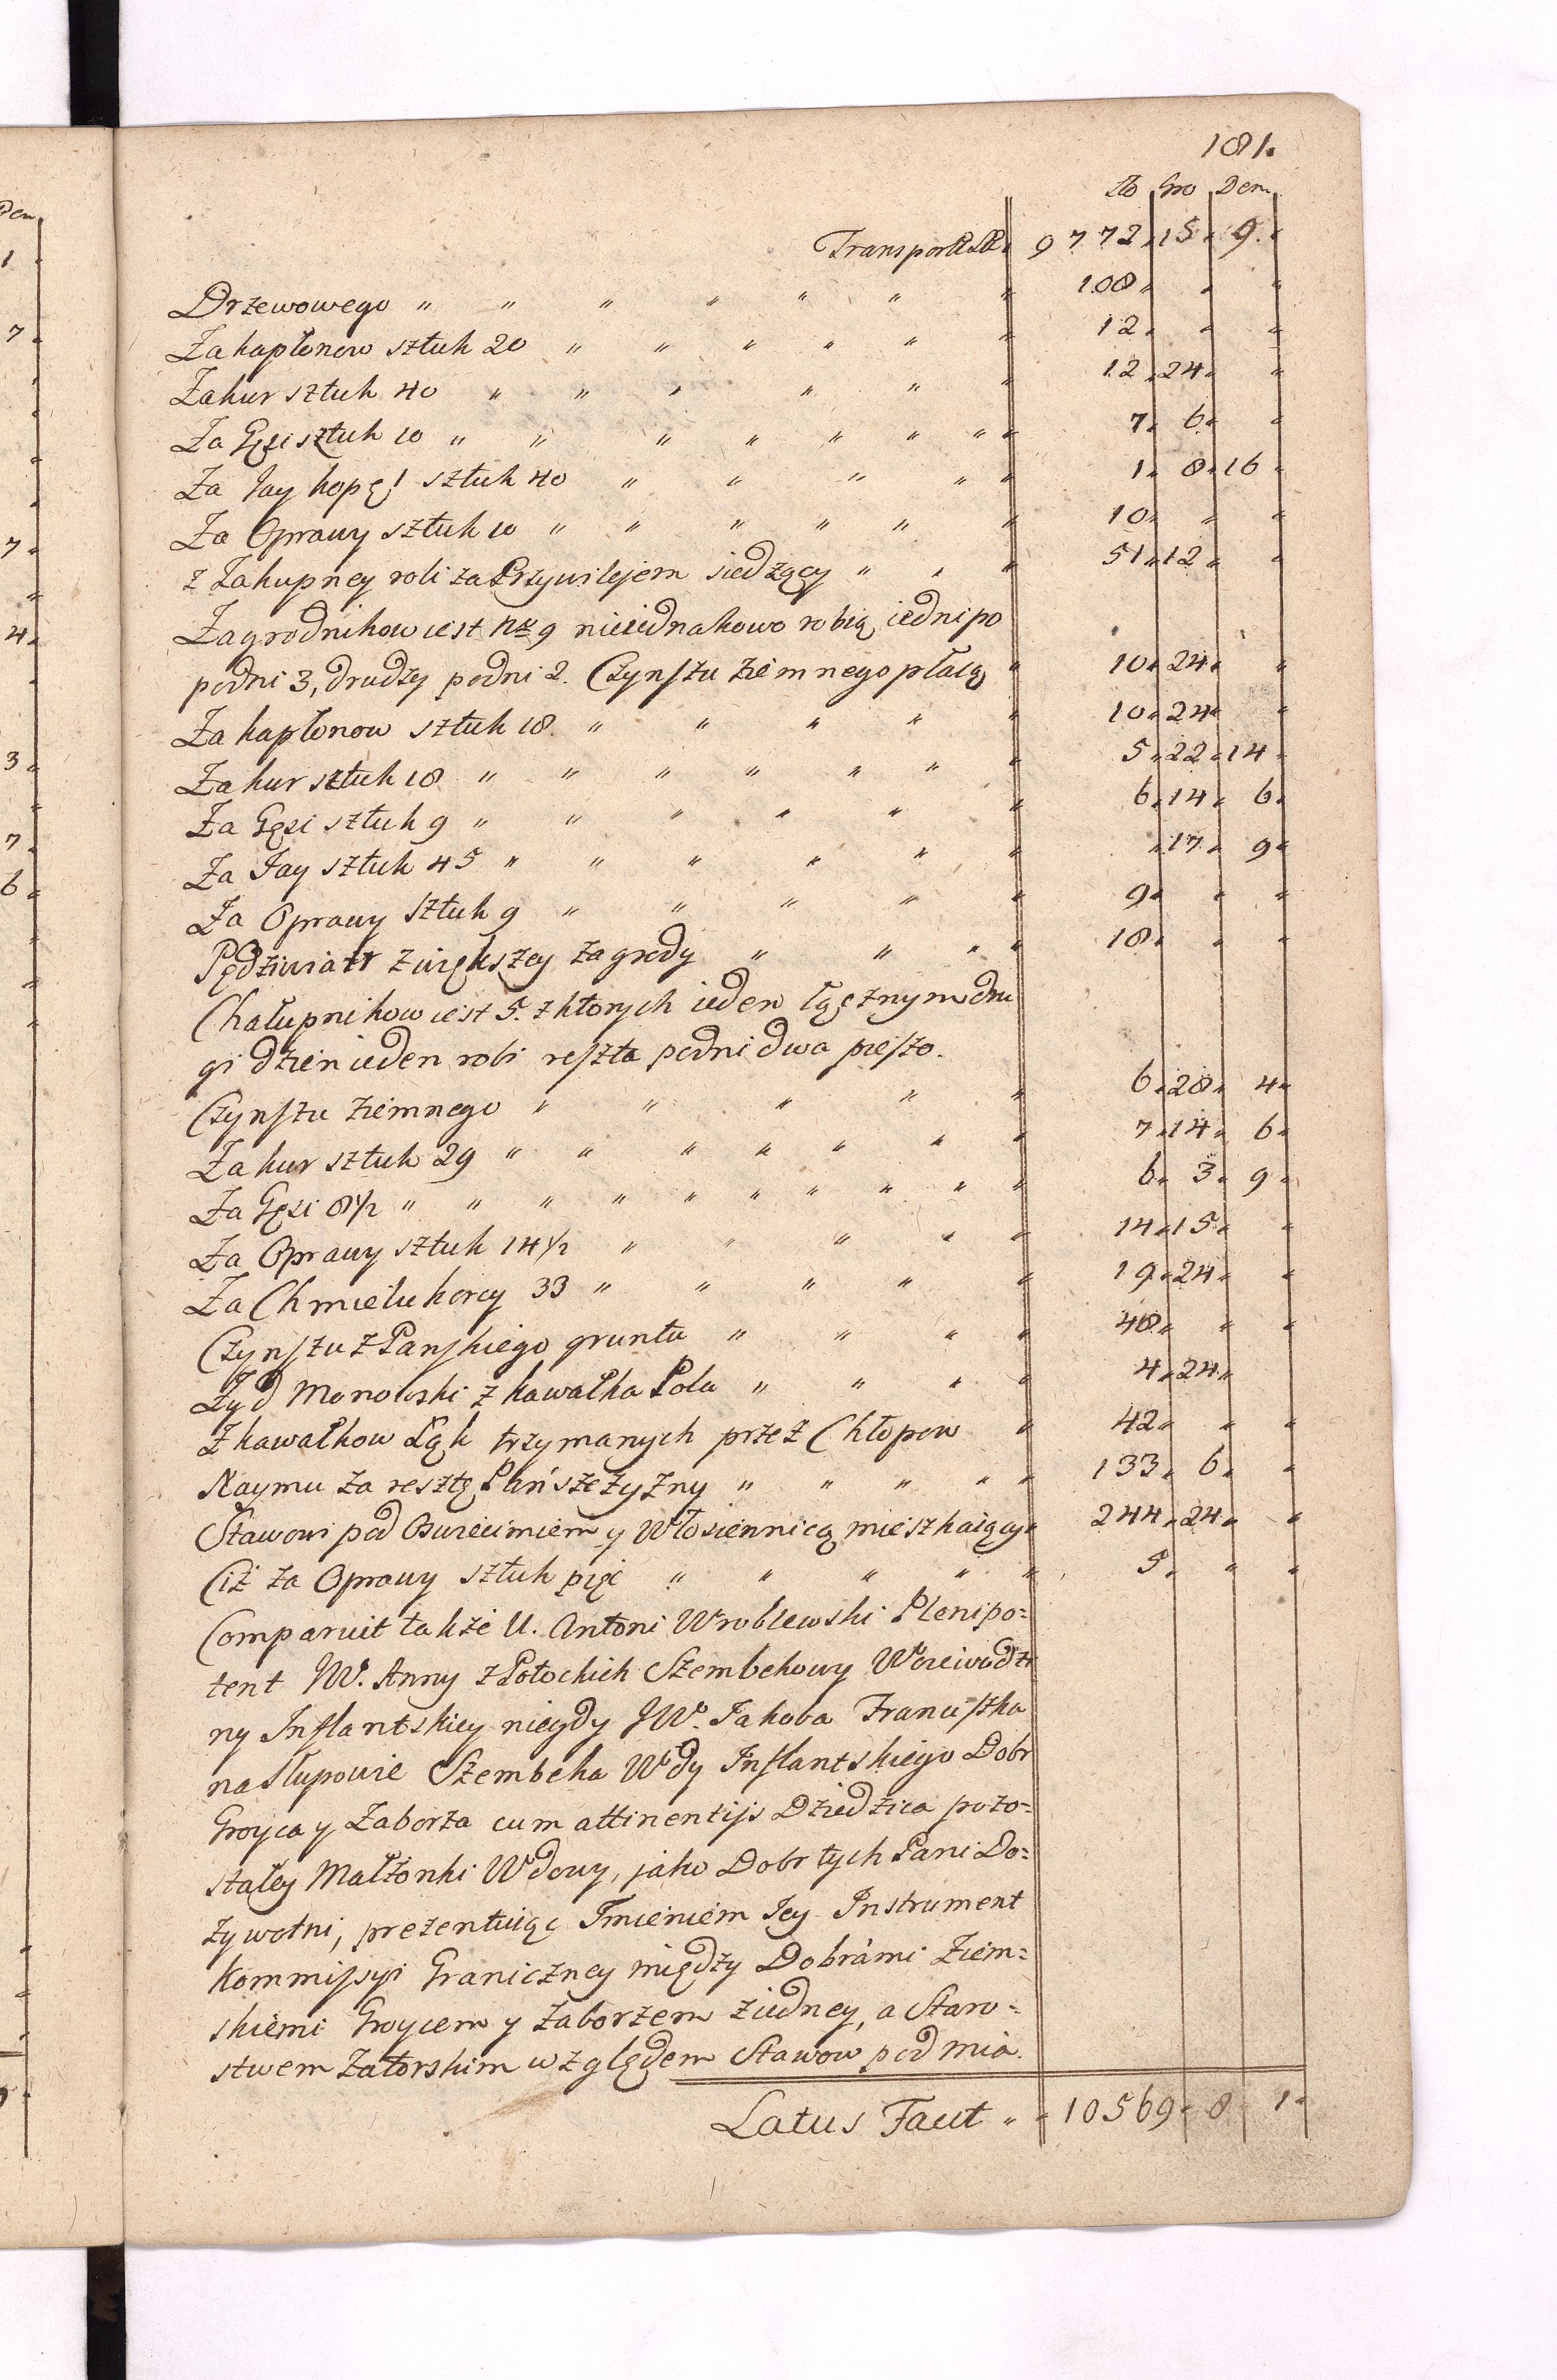 181.
Zło Gro Den
Transport 9772 " 15 " 9 "
Drzewowego " " " " " " " 108 " " "
Za kapłonow sztuk 20 " " " " " " 12 " " "
Za kur sztuk 40 " " " " " " 12 " 24 " "
Za Gęsi sztuk 10 " " " " " " " " 7 " 6 " "
Za Jay kopę 1 sztuk 40 " " " " " 1 " 8 " 16 "
Za Oprawy sztuk 10 " " " " " " 10 " " "
z Zakupney roli za Przywilejem siedzący " " " 51 " 12 " "
Zagrodnikow iest Nro 9 nieiednakowo robią, iedni po
podni 3, drudzy podni 2. Czynszu ziemnego płacą " 10 " 24 " "
Za kapłonow sztuk 18. " " " " " 10 " 24 " "
Za kur sztuk 18 " " " " " " " 5 " 22 " 14 "
Za Gęsi sztuk 9 " " " " " " 6 " 14 " 6 "
Za Jay sztuk 45 " " " " " " " 17 " 9 "
Za Oprawy sztuk 9 " " " " " 9 " " "
Pędziwiatr z większey zagrody " " " " 18 " " "
Chałupnikow iest 5. z ktorych ieden łącznym dru
gi dzien ieden robi reszta podni dwa pieszo.
Czynszu ziemnego " " " " " 6 " 28 " 4 "
Za kur sztuk 29 " " " " " " " 7 " 14 " 6 "
Za Gęsi 8 1/2 " " " " " " " " " " 6 " 3 " 9 "
Za Oprawy sztuk 14 1/2 " " " " " 14 " 15 " "
Za Chmielu korcy 33 " " " " " 19 " 24 " "
Czynszu z Panskiego gruntu " " " " 48 " " "
Zyd Monowski z kawałka Pola " " " " 4 " 24 "
Z kawałkow Łąk trzymanych przez Chłopow " 42 " " "
Naymu za resztę Pańszczyzny " " " " " 133 " 6 " "
Stawowi pod Oswiecimiem y Włosiennicą mieszkaiący " 244 " 24 " "
Ciż za Oprawy sztuk pięć " " " " " 5 " " "
Comparuit także U. Antoni Wroblewski Plenipo=
tent JW. Anny z Potockich Szembekowy Woiewodzi
ny Inflantskiey niegdy JW. Jakoba Franciszka
na Słupowie Szembeka Wdy Inflantskiego Dobr
Groyca y Zaborza cum attinentijs Dziedzica pozo=
stałey Małżonki Wdowy, jako Dobr tych Pani Do=
żywotni, prezentuiąc Imieniem Jey Instrument
Kommissyi Graniczney między Dobrámi Ziem=
skiemi Groycem y Zaborzem ziedney, a Staro=
stwem Zatorskim względem Stawow pod mia.
Latus Facit " " 10569 " 8 " 1 "
Den
1 "
7 "
7 "
4 "
3 "
7 "
6 "